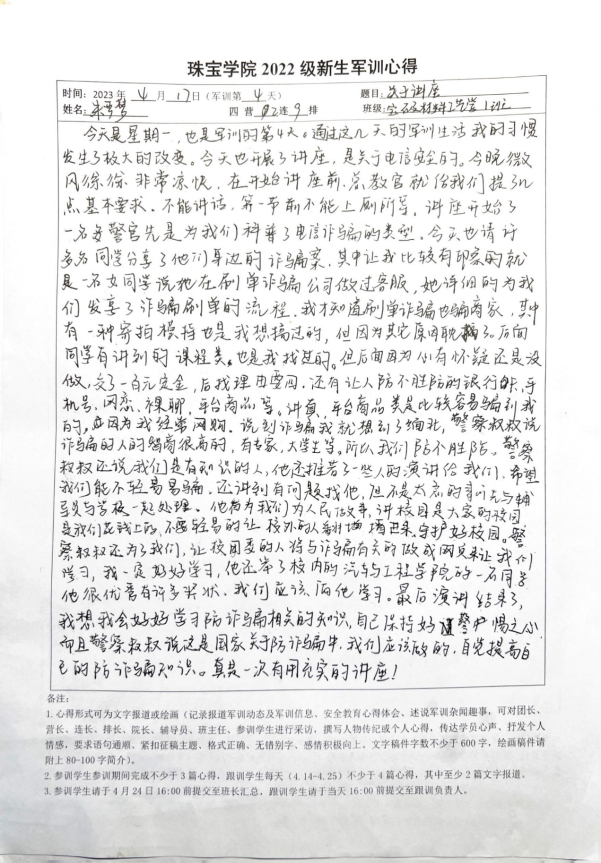 珠宝学院 2022 级新生军训心得
时间：2023 年 4 月 17日（军训第 4 天） 题目：关于讲座
姓名： 四 营 02连 9 排 班级：宝石及材料工艺学1班
今天是星期一，也是军训的第4天。通过这几天的军训生活我的习惯
发生了极大的改变。今天也开展了讲座，是关于电信安全的。今晚微
风徐徐 非常凉快，在开始讲座前，总教官就给我们提了几
点基本要求、不能讲话，第一节前不能上厕所等。讲座开始了
一名女警官先是为我们科普了电信诈骗的类型，今天也请许
多名同学分享了他们身边的诈骗案，其中让我比较有印象的就
是一名女同学说她在刷单诈骗公司做过客服，她详细的为我
们发享了诈骗刷单的流程，我才知道刷单诈骗也骗商家，其中
有一种寄拍模特也是我想搞过的，但因为其它原因耽搁了。后面
同学有讲到的课程类，也是我找过的。但后面因为心有怀疑还是没
做，交了一百元定金，后找理由要回，还有让人防不胜防的银行卡，手
机号、网恋、裸聊，平台商品等。讲真，平台商品类是比较容易骗到我
的，因为我经常网购。说到诈骗我就想到了缅北，警察叔叔说
诈骗的人的智商很高的，有专家，大学生等。所以我们防不胜防。警察
叔叔还说我们是有知识的人，他还推荐了一些人的演讲给我们，希望
我们能不轻易易骗，还讲到有问题找他，但不是太急的可以先与辅
导员与学校一起处理。他尚为我们为人民做事，讲校园是大家的校园
是我们花钱上的，不要轻易的让校外的人翻 墙 进来，守护好校园。警
察叔叔还为了我们，让校园里的人将与诈骗有关的做成网页来让我们
学习，我一定好好学习，他还举了校内的汽车与工程学院的一名同学
他很优秀有许多奖状，我们应该向他学习。最后演讲结束了，
我想我会好好学习防诈骗相关的知识，自己保持好 警惕之心
而且警察叔叔说这是国家关于防诈骗中，我们应该做的，自觉提高自
己的防诈骗知识。真是一次有用充实的讲座！
备注：
1. 心得形式可为文字报道或绘画（记录报道军训动态及军训信息、安全教育心得体会、述说军训杂闻趣事，可对团长、
营长、连长、排长、院长、辅导员、班主任、参训学生进行采访，撰写人物传纪或个人心得，传达学员心声、抒发个人
情感，要求语句通顺、紧扣征稿主题、格式正确、无错别字、感情积极向上、文字稿件字数不少于 600 字，绘画稿件请
附上 80-100 字简介）。
2. 参训学生参训期间完成不少于 3 篇心得，跟训学生每天（4.14-4.25）不少于 4 篇心得，其中至少 2 篇文字报道。
3. 参训学生请于 4 月 24 日 16:00 前提交至班长汇总，跟训学生请于当天 16:00 前提交至跟训负责人。